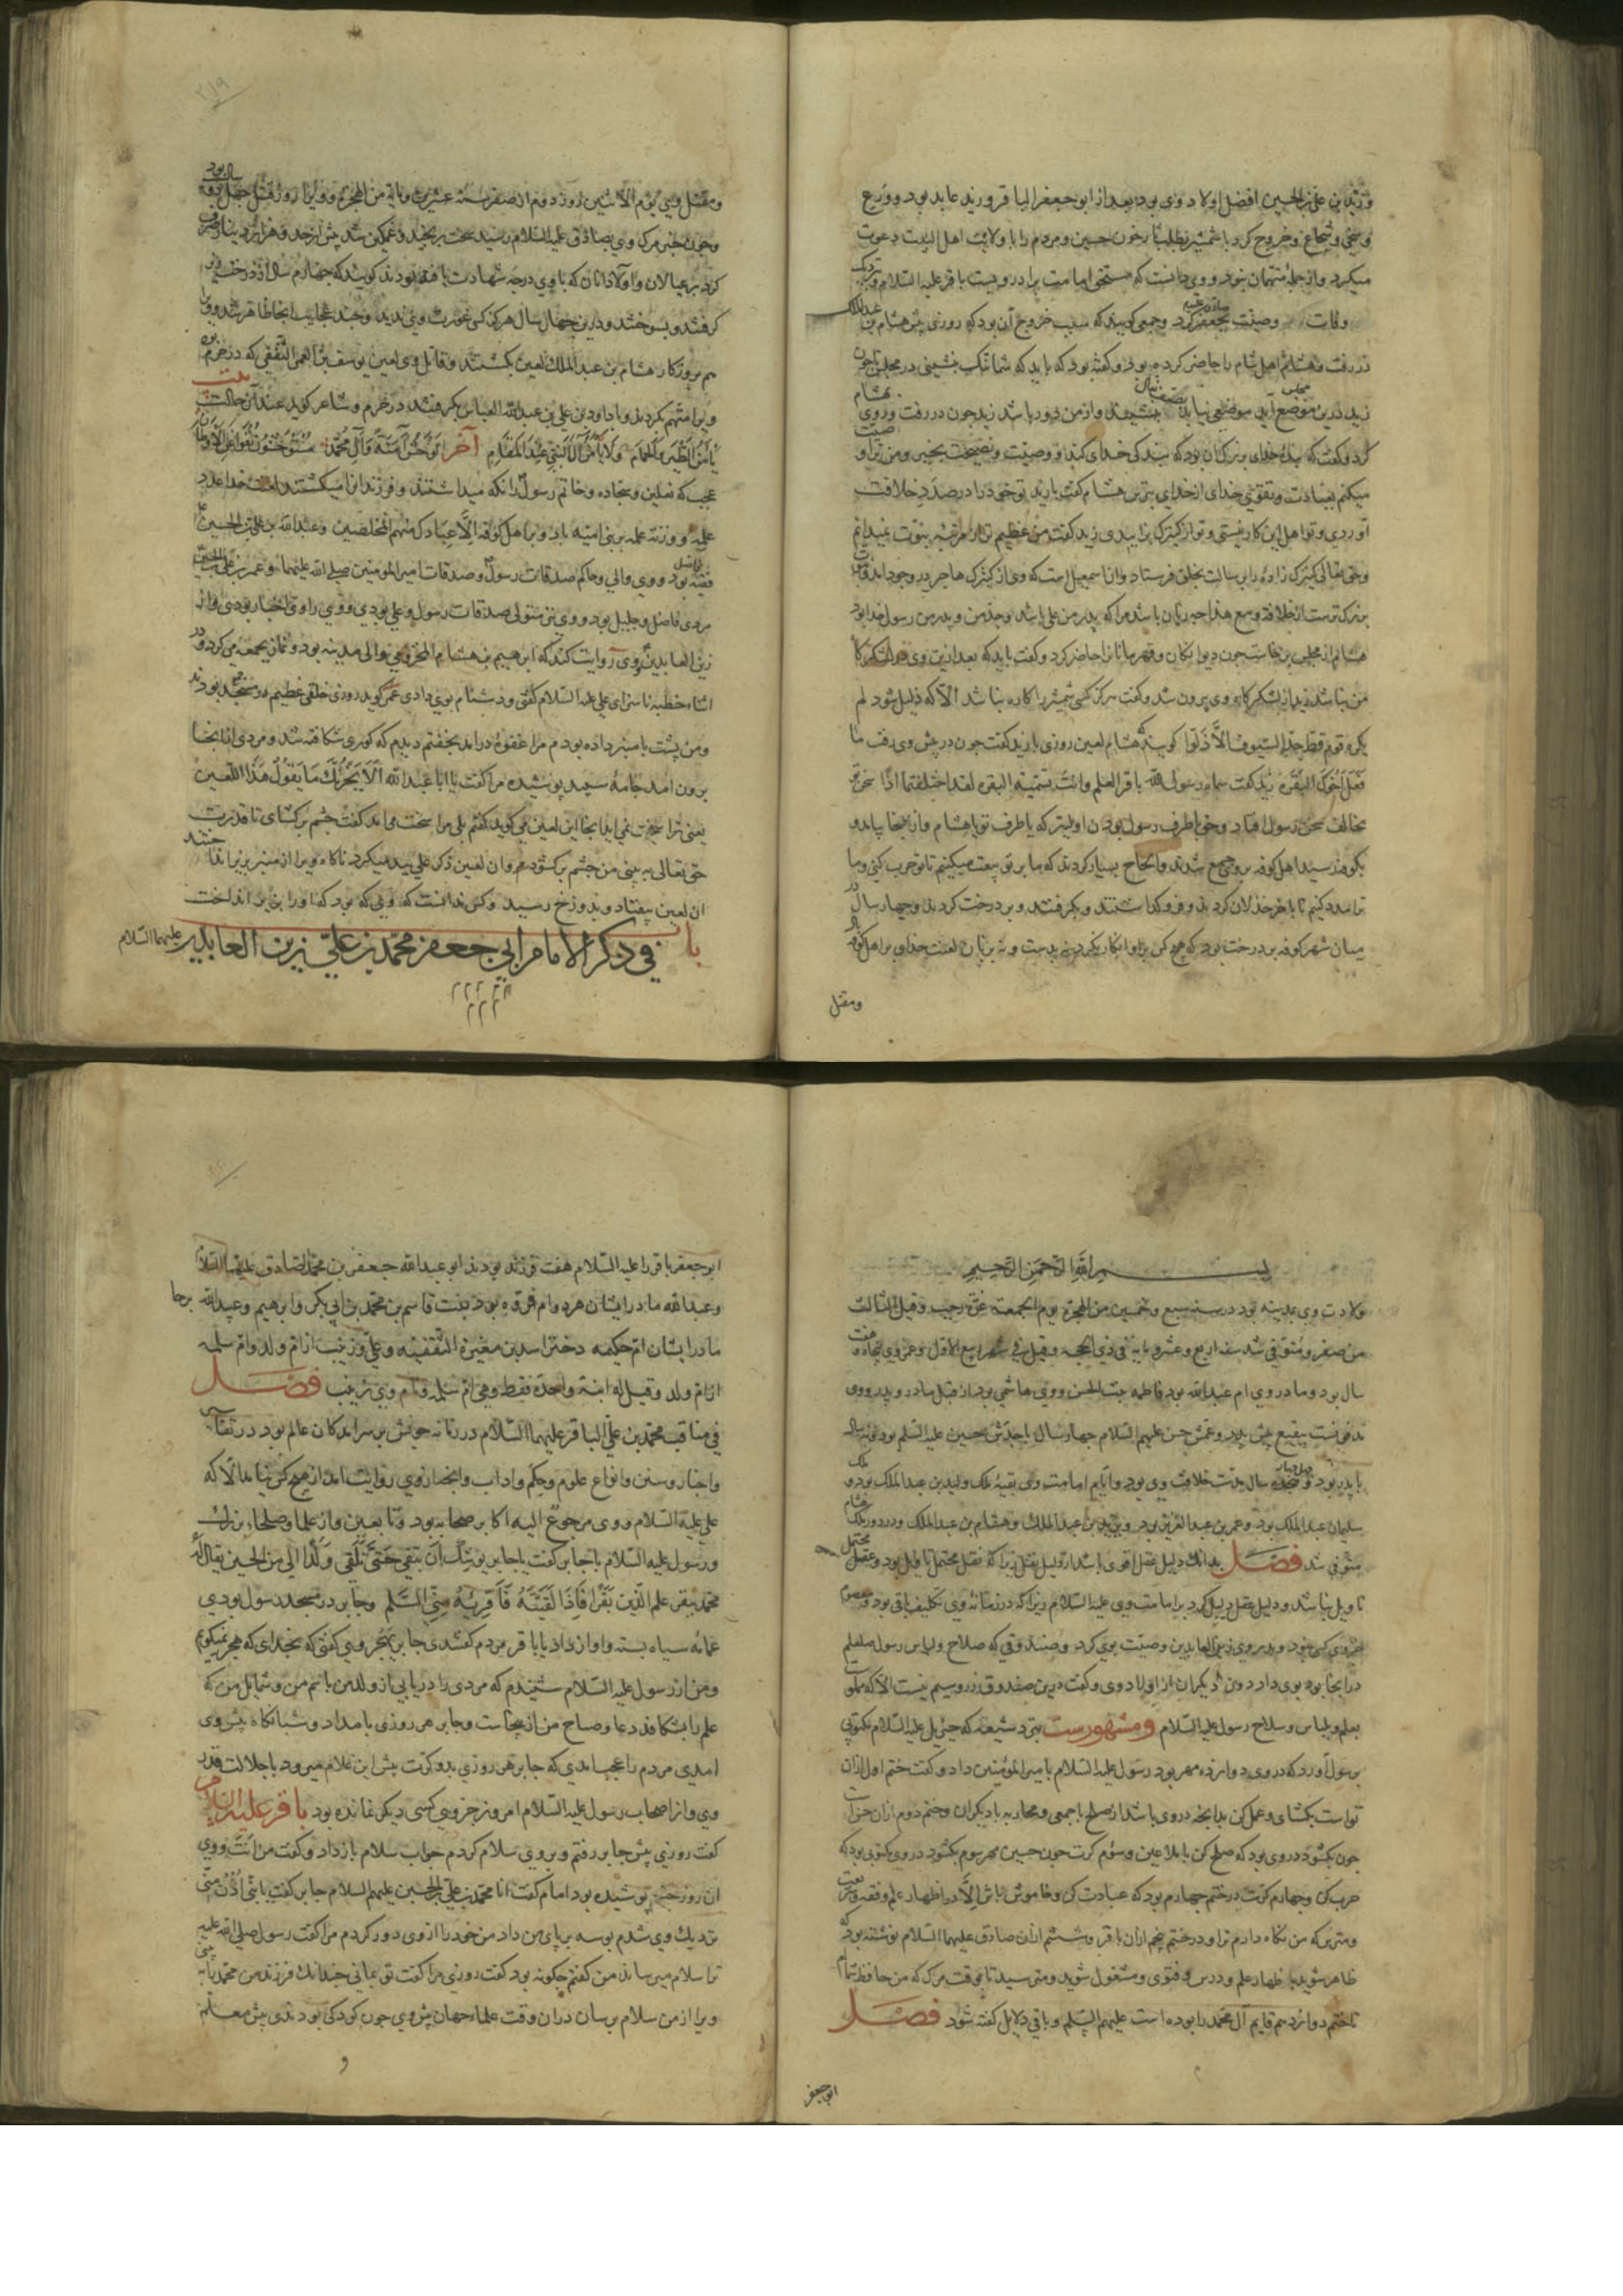 و زید بن علی بن الحسین افضل اولاد وی بود بعد از ابو جعفر الباقر و زید عابد بود و ورع
و سخی و شجاع و خروج کرد با شمشیر بطلب ثار خون حسین و مردم را با ولایت اهل البیت دعوت
میکرد و از جمله متهمان نبود و وی دانست که مستحق امامت برادر ویست باقر علیه السلام و نزدیک
وفات وصیت بجعفر صادق علیه کرد و جمعی گویند که سبب خروج آن بود که روزی پیش هشام بن عبدالملک
در رفت و هشام اهل شام را حاضر کرده بود و گفته بود که باید که شما تنگ بنشینی در مجلس تا چون
زید درین موضع آید موضعی نیابد بنشیند و از من دور باشد زید چون در رفت و روی بهشام
کرد و گفت که بنده خدای بزرگ آن بود که بندگی خدای کند و وصیت و نصیحت بخیر و من ترا وصیت
میکنم بعبادت و تقوی خدای از خدای بترس هشام گفت یا زید تو خود را در صدر خلافت
آوردی و تو اهل این کار نیستی و تو از کنیزک زایدی زید گفت من عظیم تر از مرتبه نبوت نمیدانم
و حق تعالی کنیزک زاده را برسالت بخلق فرستاد و آن اسمعیل است که وی از کنیزک هاجر در وجود آمد
بزرگ ترست از خلافت و مع هذا چه زیان باشد مرا که پدر من علی باشد و جد من و پدر من رسول خدا بود
هشام از مجلس برخاست چون دیوانگان و قهرمانانرا حاضر کرد و گفت باید که بعد ازین وی در لشکرگاه
من نباشد زید از لشکرگاه وی بیرون شد و گفت هرگز کسی شمشیر را کاره نباشد الا که ذلیل شود لم
یکره قوم قط حد السیوف الا ذلوا گویند هشام لعین روزی با زید گفت چون در پیش وی رفت ما
فعل اخوک البقره زید گفت سماه رسول الله باقر العلم و انت تسمیه البقره لقد اختلفتما اذا سخن تو
مخالف سخن رسول افتاد و حق با طرف رسول بودن اولیتر که با طرف تو یا هشام و از اینجا بیامد و
بکوفه رسید اهل کوفه برو جمع شدند و الحاح بسیار کردند که ما بر تو بیعت میکنیم تا تو حرب کنی و ما
ترا مدد کنیم تا بآخر خذلان کردند و فرو گذاشتند و بگرفتند و بر درخت کردند و چهار سال در
میان شهر کوفه بر درخت بود که هیچ کس برو انکار نکرد نه بدست و نه بزبان لعنت خدای بر اهل کوفه باد
و مقتل
۲۱۹
و مقتل وی یوم الاثنین روز دوم از صفر سنه عشرین و مایة من الهجرة و ویرا روز قتل چهل و دو سال بود
و چون خبر مرگ وی بصادق علیه السلام رسید سخت برنجید و غمگین شد بیش از حد و هزار دینار صرف
کرد بر عیالان و اولاد آنان که با وی درجه شهادت یافته بودند گویند که چهارم سال از درخت فرو
گرفتند و بسوختند و درین چهار سال هرگز کسی عورت وی ندید و چند عجایب آنجا ظاهر شد و ویرا
هم بروزگار هشام بن عبدالملک لعین بکشتند و قاتل وی لعین یوسف بن العمر الثقفی که در حرم بود
ویرا متهم کردند و با داود بن علی بن عبدالله العباس بگرفتند در حرم و شاعر گوید عند آن حالت بیت
یأمن الظبی و الحمام و لا یأمن آل النبی عند المقام آخر
عجب که نعلین و سجاده و خاتم رسول را نگه میداشتند و فرزندانرا میکشتند لعنت خدا عدد
علمه و وزنة علمه بر بنی امیه باد و بر اهل کوفه الا عبادک منهم المخلصین و عبدالله بن علی بن الحسین
فقیه فاضل بود و وی والی و حاکم صدقات رسول و صدقات امیر المؤمنین صلی الله علیهما و عمر بن علی بن الحسین
مردی فاضل و جلیل بود و وی نیز متولی صدقات رسول و علی بودی و وی راوی اخبار بودی و از
زین العابدین وی روایت کند که ابرهیم بن هشام المخزومی والی مدینه بود و نماز جمعه می کرد و در
اثناء خطبه ناسزای علی علیه السلام گفتی و دشنام بوی دادی عمر گوید روزی خلقی عظیم در مسجد بودند
و من پشت با منبر داده بودم مرا غفوة درآمد بخفتم دیدم که گوری شکافته شد و مردی از آنجا
برون آمد جامه سپید پوشیده مرا گفت یا ابا عبدالله الا یحزنک ما یقول هذا اللعین
یعنی ترا سخت نمی آید آنچا این لعین می گوید گفتم بلی مرا سخت می آید گفت چشم برگشای تا قدرت
حق تعالی به بینی من چشم برگشودم و آن لعین ذکر علی ببد میکرد ناگاه ویرا از منبر بزیر انداختند
آن لعین بیفتاد و بدوزخ رسید و کس ندانست که وی که بود که اورا بزیر انداخت
باب فی ذکر الامام ابی جعفر محمد بن علی زین العابدین علیهما السلام
بسم الله الرحمن الرحیم
ولادت وی بمدینه بود در سنه سبع و خمسین من الهجرة یوم الجمعة غرة رجب و قیل الثالث
من صفر و متوفی شد سنه اربع و عشر و مایة فی ذی الحجه و قیل فی شهر ربیع الاول و عمر وی پنجاه و هفت
سال بود و مادر وی ام عبدالله بود فاطمه بنت الحسن و وی هاشمی بود از قبل مادر و پدر و وی
مدفونست ببقیع پیش پدر و عمش حسن علیهم السلام چهار سال با جدش حسین علیه السلم بود و نه سال
با پدر بود و هجده سال مدت خلافت وی بود و ایام امامت وی بقیه ملک ولید بن عبدالملک بود و ملک
سلیمان عبدالملک بود و عمر بن عبدالعزیز بود و یزید بن عبدالملک و هشام بن عبدالملک و در دور ملک هشام
متوفی شد فصل بدانک دلیل عقل اقوی باشد از دلیل نقل زیرا که نقل محتمل تاویل بود و عقل محتمل
تاویل نباشد و دلیل عقل دلیل کرد بر امامت وی علیه السلام زیرا که در زمانه وی تکلیف باقی بود و معصوم
جز وی کسی نبود و پدر وی زین العابدین وصیت بوی کرد و صندوقی که صلاح و لباس رسول صلعلم
در آنجا بود بوی داد دون دیگران از اولاد وی و گفت درین صندوق زر و سیم نیست الا که مملوست
بعلم و بلباس و سلاح رسول علیه السلام و مشهورست نزد شیعه که جبرئیل علیه السلام مکتوبی
برسول آورد که در وی دوازده مهر بود رسول علیه السلام بامیر المؤمنین داد و گفت ختم اول ازان
تواست بگشای و عمل کن بدآنچه در وی باشد از صلح با جمعی و محاربه با دیگران و ختم دوم ازان حسن است
چون بگشود در وی بود که صلح کن با ملاعین و سوم کرت چون حسین مهر سوم بگشود در وی مکتوبی بود که
حرب کن و چهارم کرت در ختم چهارم بود که عبادت کن و خاموش باش الا در اظهار علم و فقه و شریعت
و مترس که من نگاه دارم ترا و در ختم پنجم ازان باقر و ششم ازان صادق علیهما السلام نوشته بود که
ظاهر شوید باظهار علم و درس و فتوی و مشغول شوید و مترسید تا بوقت مرگ که من حافظ شمام
تا ختم دوازدهم قایم آل محمد را بوده است علیهم السلم و باقی دلایل گفته شود فصل
ابو جعفر
۲۲۰
ابو جعفر باقر را علیه السلام هفت فرزند بودند ابو عبدالله جعفر بن محمد الصادق علیهما السلام
و عبدالله مادر ایشان هر دو ام فروه بود بنت قاسم بن محمد بن ابی بکر و ابرهیم و عبید الله برجا
مادر ایشان ام حکیمه دختر اسد بن مغیرة الثقفیه و علی و زینب از ام ولد و ام سلمه
از ام ولد و قیل له ابنة واحدة فقط و هی ام سلمه و ام وی زینب فصل
فی مناقب محمد بن علی الباقر علیهما السلام در زمانه خویش بر سرآمدگان عالم بود در تفاسیر
و اخبار و سنن و انواع علوم و حکم و اداب و آنچه از وی روایت آمد از هیچ کس نیامد الا که
علی علیه السلام و وی مرجوع الیه اکابر صحابه بود و تابعین و از علما و صلحاء بزرگ
و رسول علیه السلام با جابر گفت یا جابر یوشک ان تبقی حتی تلقی ولدا لی من الحسین یقال له
محمد یبقر علم الدین بقرا فاذا لقیته فاقریه منی السلم و جابر در مسجد رسول بودی
عمامه سیاه بسته و آواز داد یا باقر مردم گفتندی جابر یهجر وی گفتی که بخدای که هجر نمیگویم
و من از رسول علیه السلام شنیدم که مردی را دریابی از ولد من بانام من و شمایل من که
علم را بشکافد دعا و صیاح من ازینجاست و جابر هر روزی بامداد و شبانگاه پیش وی
آمدی مردم را عجب آمدی که جابر هر روزی بدو کرت پیش این غلام میرود با جلالت قدر
وی و از اصحاب رسول علیه السلام امروز جز وی کسی دیگر نمانده بود باقر علیه السلام
گفت روزی پیش جابر رفتم و بر وی سلام کردم جواب سلام باز داد و گفت من انت و وی
آن روز چشم پوشیده بود امام گفت انا محمد بن علی بن الحسین علیهم السلام جابر گفت یا بنی ادن منی
نزدیک وی شدم بوسه بر پای من داد من خود را از وی دور کردم مرا گفت رسول صلی الله علیه
ترا سلام میرساند من گفتم چگونه بود گفت روزی مرا گفت تو بمانی چندانک فرزند من محمد نام
ویرا از من سلام برسان دران وقت علماء جهان پیش وی چون کودکی بودندی پیش معلم
و